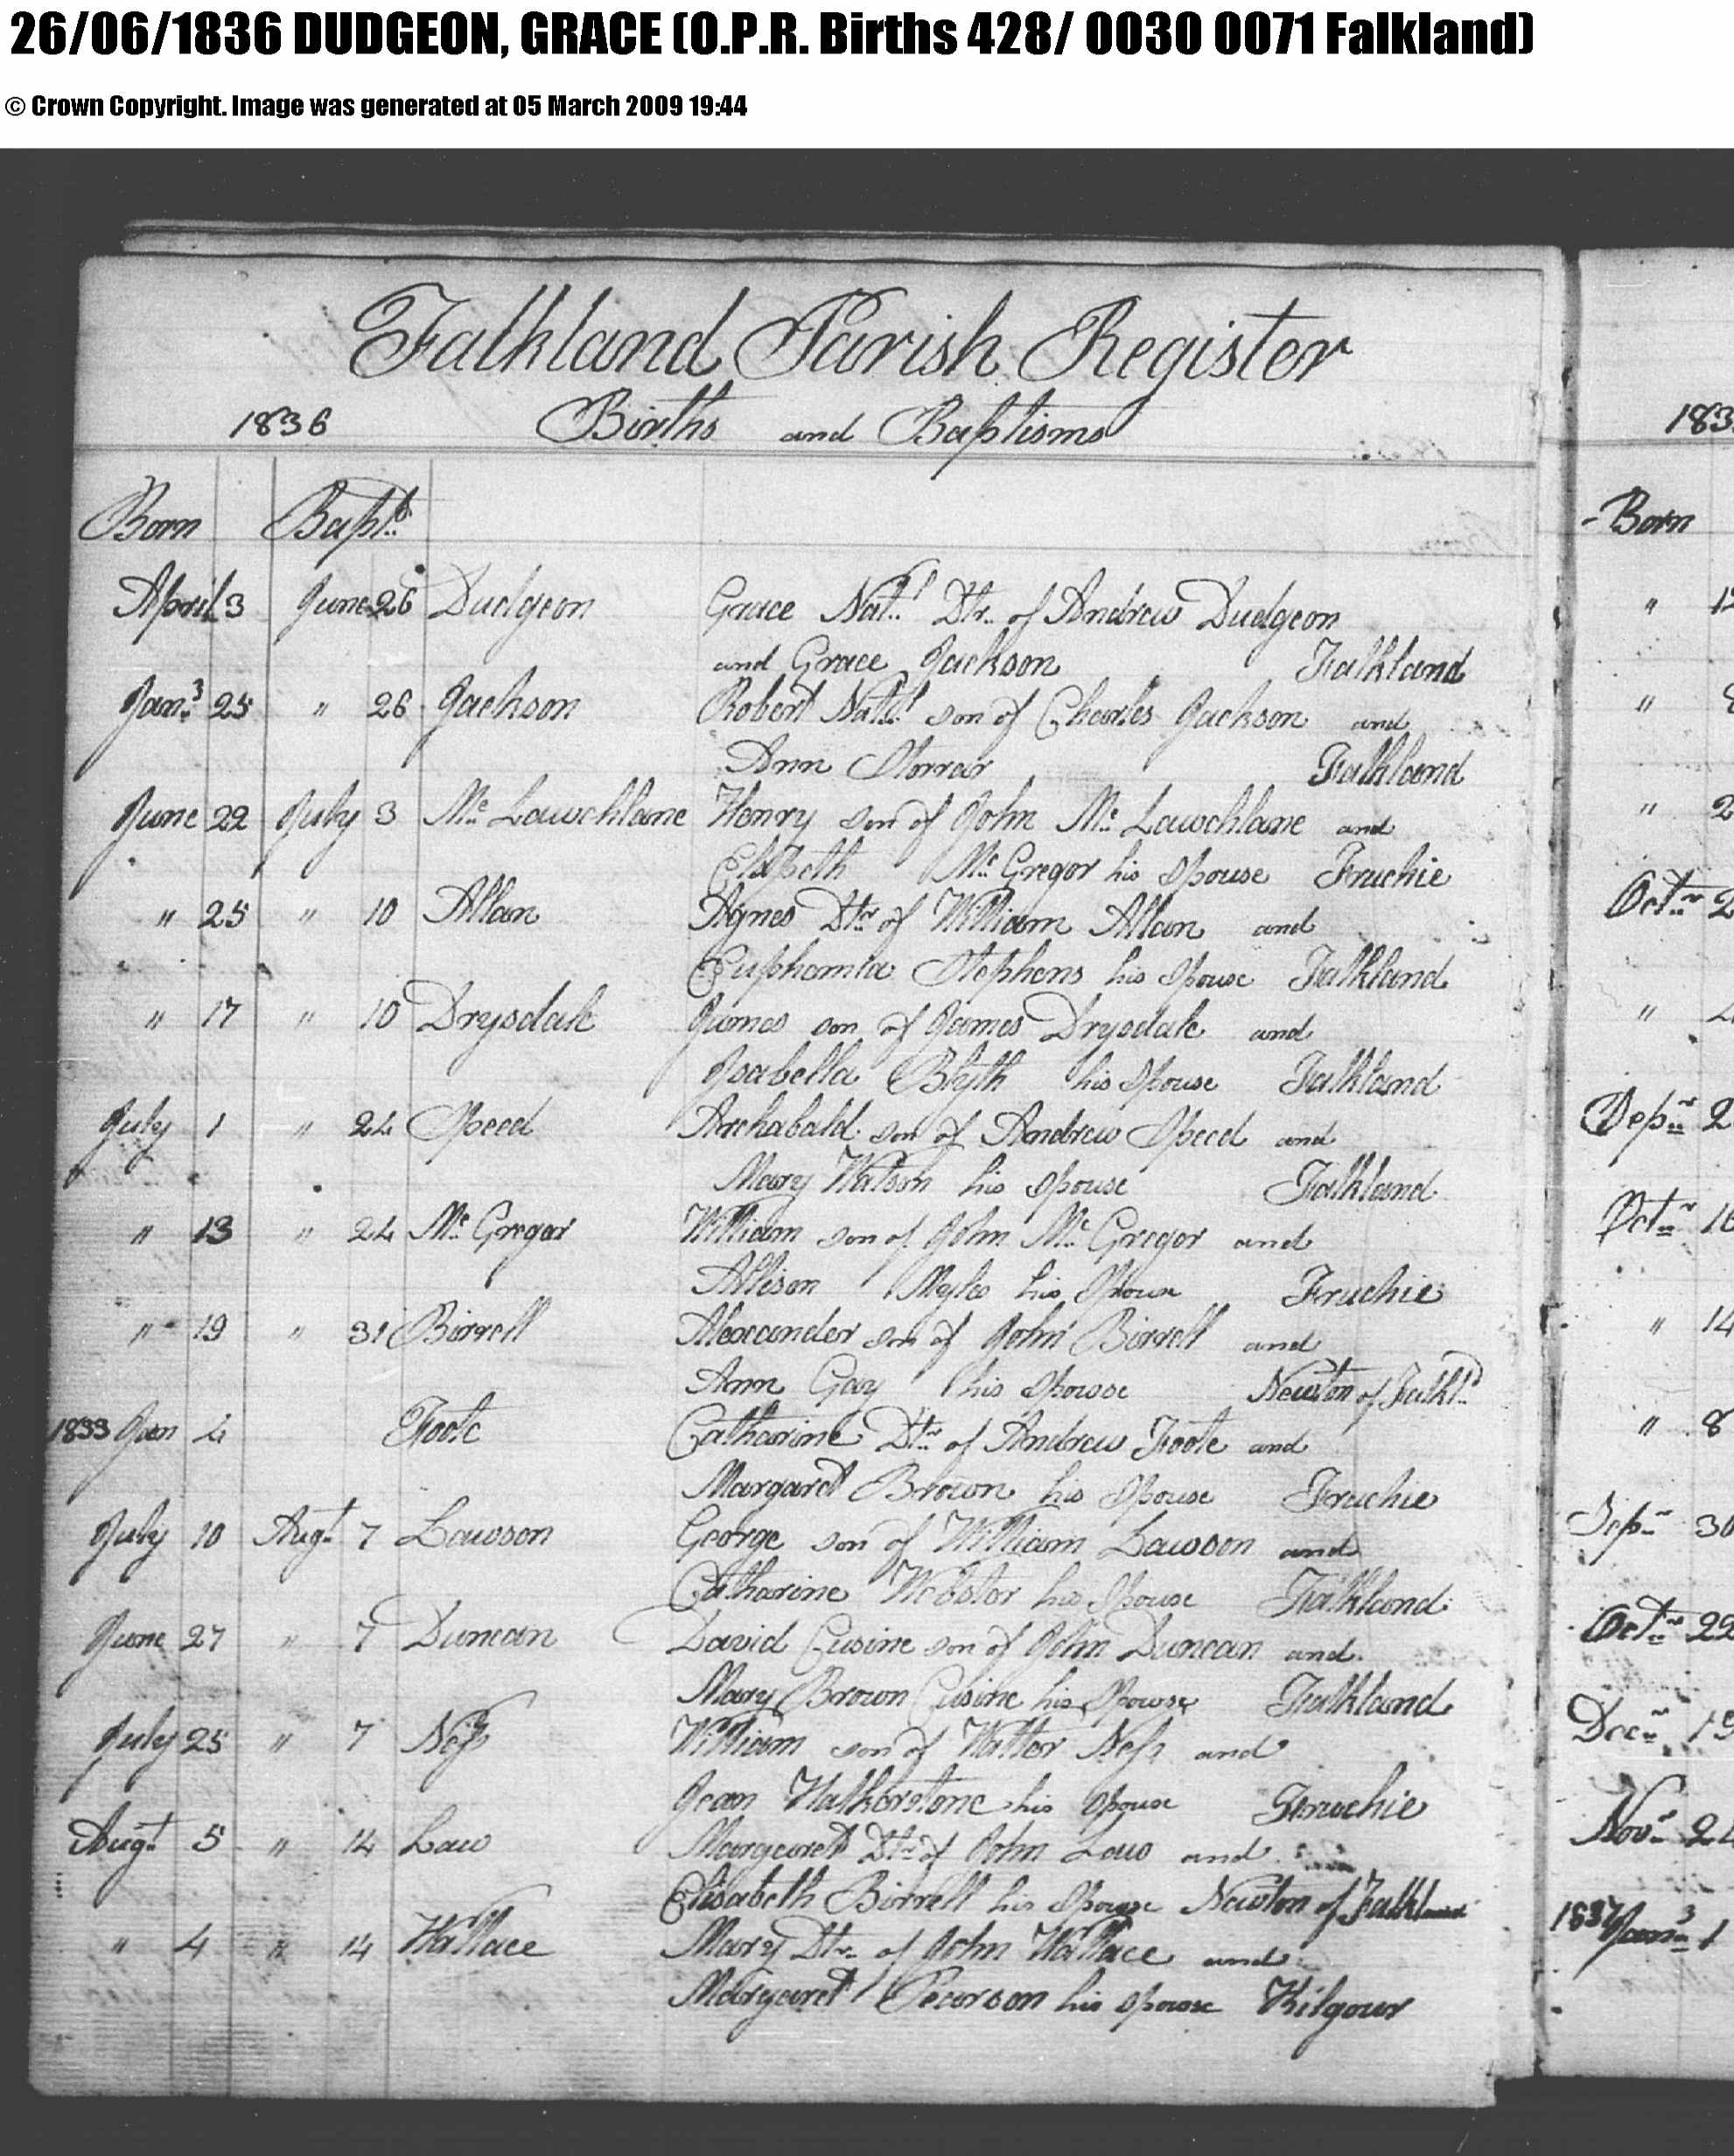 26/06/1836 DUDGEON, GRACE (O.P.R. Births 428/ 0030 0071 Falkland)
© Crown Copyright. Image was generated at 05 March 2009 19:44
Falkland Parish Register
1836 Births and Baptisms
Born Bapt.d
April 3 June 26 Dudgeon Grace Nat.l Dtr. of Andrew Dudgeon
and Grace Jackson Falkland
Jan.y 25 " 26 Jackson Robert Nat.l son of Charles Jackson and
Ann Storrar Falkland
June 22 July 3 Mc Lauchlane Henry son of John Mc Lauchlane and
Elspeth Mc Gregor his Spouse Fruchie
" 25 " 10 Allan Agnes Dtr of William Allan and
Euphemia Stephens his Spouse Falkland
" 17 " 10 Drysdale James son of James Drysdale and
Isabella Blyth his Spouse Falkland
July 1 " 24 Speed Archabald son of Andrew Speed and
Mary Watson his Spouse Falkland
" 13 " 24 Mc Gregor William son of John Mc Gregor and
Allison Myles his Spouse Fruchie
" 19 " 31 Birrell Alexander son of John Birrell and
Ann Gay his Spouse Newton of Falkl.d
1833 Jan 4 Foote Catharine Dtr of Andrew Foote and
Margaret Brown his Spouse Fruchie
July 10 Augt 7 Lawson George son of William Lawson and
Catharine Webster his Spouse Falkland
June 27 " 7 Duncan David Cusine son of John Duncan and
Mary Brown Cusine his Spouse Falkland
July 25 " 7 Ness William son of Walter Ness and
Jean Hatherstone his Spouse Fruchie
Augt 5 " 14 Law Margaret Dtr of John Law and
Elisabeth Birrell his Spouse Newton of Falkland
" 4 " 14 Wallace Mary Dtr of John Wallace and
Margaret Pearson his Spouse Kilgour
183
Born
"
"
" 2
Octr 2
"
Sepr 2
Octr 16
" 14
" 8
Sepr 30
Octr 22
Decr 19
Novr 24
1837 Jany 1